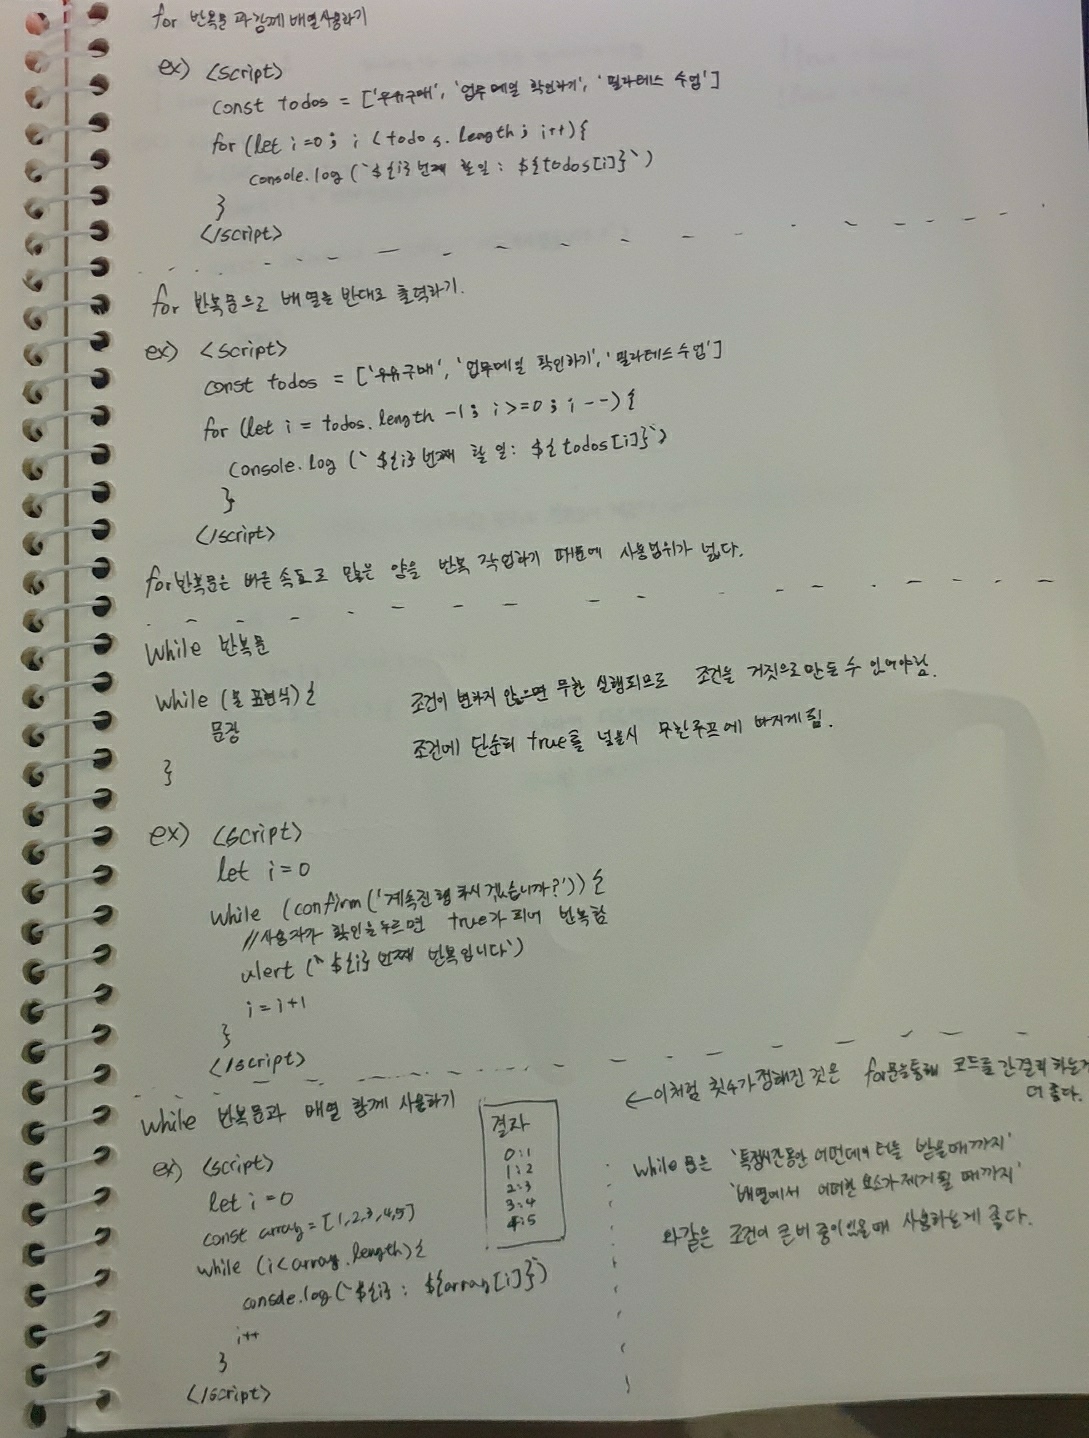 for 반복문과 함께 배열 사용하기
ex) <script>
const todos = ['우유구매', '업무 메일 확인하기', '필라테스 수업']
for (let i=0; i < todos.length; i++){
console.log (`${i}번째 할 일: ${todos[i]}`)
}
</script>
for 반복문으로 배열을 반대로 출력하기.
ex) <script>
const todos = ['우유구매', '업무메일 확인하기', '필라테스 수업']
for (let i = todos.length -1; i >=0; i--) {
console.log (`${i}번째 할 일: ${todos[i]}`)
}
</script>
for반복문은 빠른 속도로 많은 양을 반복 작업하기 때문에 사용범위가 넓다.
while 반복문
while (불 표현식) {
문장
}
조건이 변하지 않으면 무한 실행되므로 조건을 거짓으로 만들 수 있어야함.
조건에 단순히 true를 넣을시 무한루프에 빠지게 됨.
ex) <script>
let i=0
while (confirm('계속진행하시겠습니까?')) {
//사용자가 확인을 누르면 true가 되어 반복함
alert (`${i}번째 반복입니다`)
i = i+1
}
</script>
while 반복문과 배열 함께 사용하기
ex) <script>
let i=0
const array = [1,2,3,4,5]
while (i<array.length){
console.log(`${i} : ${array[i]}`)
i++
}
</script>
결과
0:1
1:2
2:3
3:4
4:5
← 이처럼 횟수가 정해진 것은 for문을통해 코드를 간결히 하는게
더 좋다.
while 문은 '특정시간동안 어떤데이터를 받을때까지'
'배열에서 어떠한 요소가 제거될 때까지'
와같은 조건이 큰 비중이있을때 사용하는게 좋다.